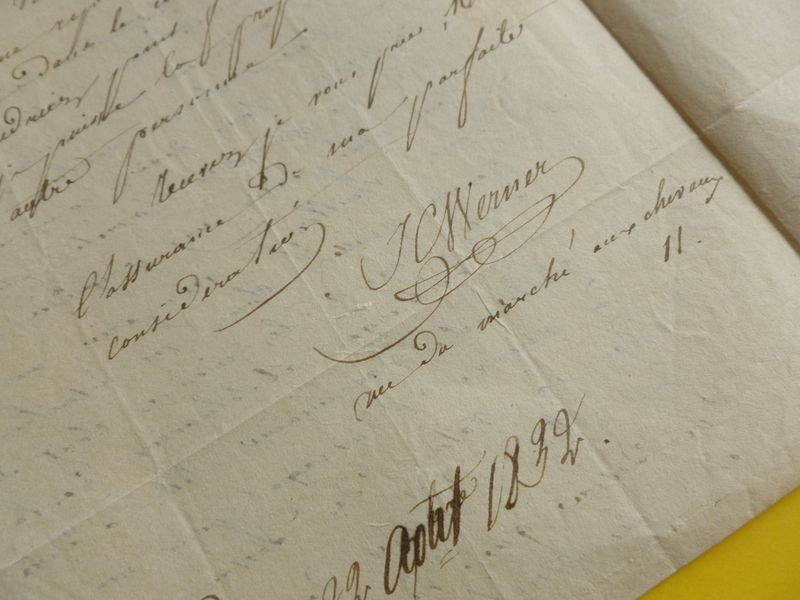 dans le
puisse
autre personne
recevez je vous prie,
l'assurance de ma parfaite
considération
JC Werner
rue du marché aux chevaux
11.
22 Août 1832.